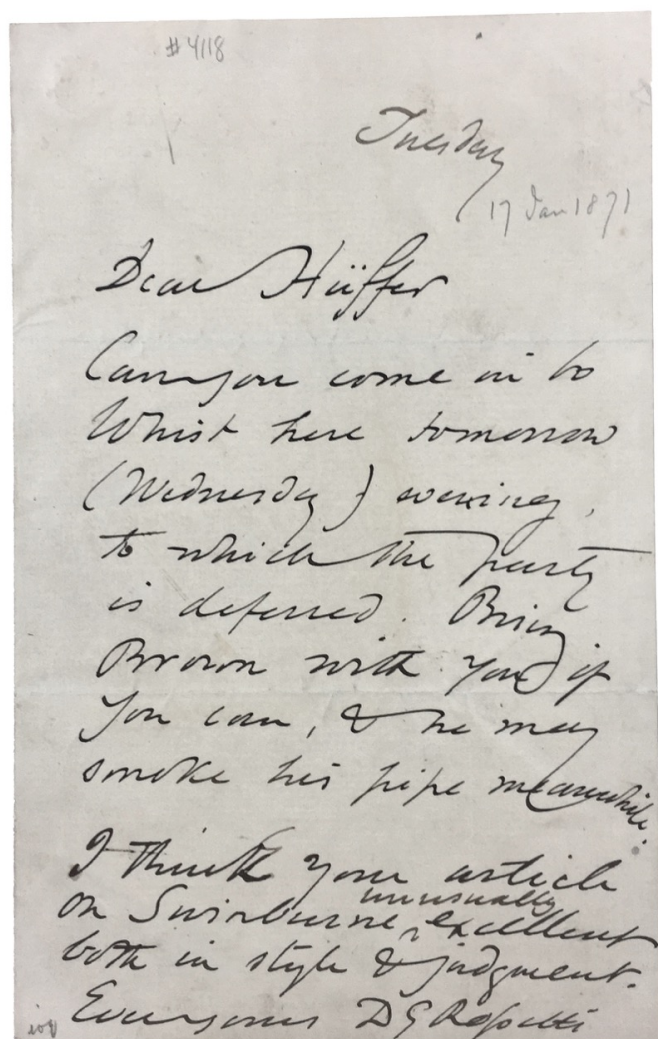 #4118
Tuesday
17 Jan 1871
Dear Hüffer
Can you come in to
Whist here tomorrow
(Wednesday) evening,
to which the party
is deferred. Bring
Brown with you if
you can, & he may
smoke his pipe meanwhile.
I think your article
on Swinburne unusually excellent
both in style & judgment.
Ever yours D G Rossetti